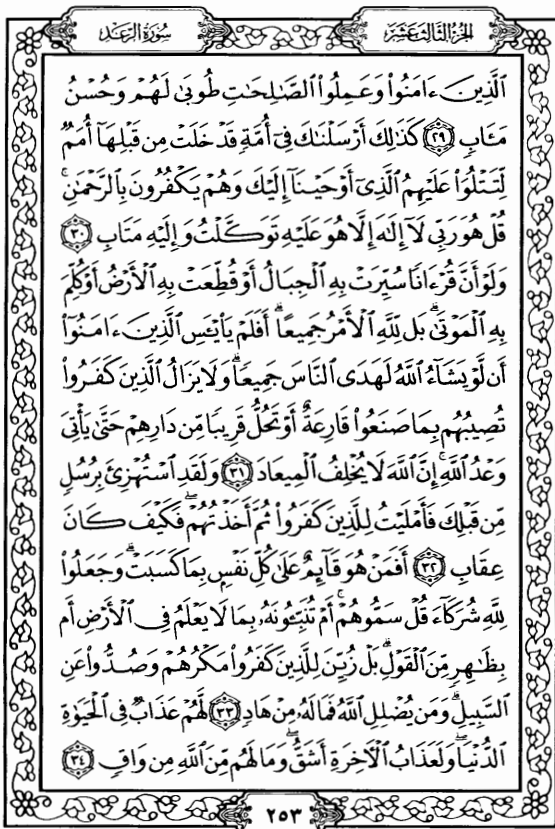 سُورَةُ الرَّعْدِ
الجُزْءُ الثَّالِثَ عَشَرَ
ٱلَّذِينَ ءَامَنُوا۟ وَعَمِلُوا۟ ٱلصَّـٰلِحَـٰتِ طُوبَىٰ لَهُمْ وَحُسْنُ
مَـَٔابٍ ٢٩ كَذَٰلِكَ أَرْسَلْنَـٰكَ فِىٓ أُمَّةٍ قَدْ خَلَتْ مِن قَبْلِهَآ أُمَمٌ
لِّتَتْلُوَا۟ عَلَيْهِمُ ٱلَّذِىٓ أَوْحَيْنَآ إِلَيْكَ وَهُمْ يَكْفُرُونَ بِٱلرَّحْمَـٰنِ ۚ
قُلْ هُوَ رَبِّى لَآ إِلَـٰهَ إِلَّا هُوَ عَلَيْهِ تَوَكَّلْتُ وَإِلَيْهِ مَتَابِ ٣٠
وَلَوْ أَنَّ قُرْءَانًا سُيِّرَتْ بِهِ ٱلْجِبَالُ أَوْ قُطِّعَتْ بِهِ ٱلْأَرْضُ أَوْ كُلِّمَ
بِهِ ٱلْمَوْتَىٰ ۗ بَل لِّلَّهِ ٱلْأَمْرُ جَمِيعًا ۗ أَفَلَمْ يَا۟يْـَٔسِ ٱلَّذِينَ ءَامَنُوٓا۟
أَن لَّوْ يَشَآءُ ٱللَّهُ لَهَدَى ٱلنَّاسَ جَمِيعًا ۗ وَلَا يَزَالُ ٱلَّذِينَ كَفَرُوا۟
تُصِيبُهُم بِمَا صَنَعُوا۟ قَارِعَةٌ أَوْ تَحُلُّ قَرِيبًا مِّن دَارِهِمْ حَتَّىٰ يَأْتِىَ
وَعْدُ ٱللَّهِ ۚ إِنَّ ٱللَّهَ لَا يُخْلِفُ ٱلْمِيعَادَ ٣١ وَلَقَدِ ٱسْتُهْزِئَ بِرُسُلٍ
مِّن قَبْلِكَ فَأَمْلَيْتُ لِلَّذِينَ كَفَرُوا۟ ثُمَّ أَخَذْتُهُمْ ۖ فَكَيْفَ كَانَ
عِقَابِ ٣٢ أَفَمَنْ هُوَ قَآئِمٌ عَلَىٰ كُلِّ نَفْسٍۭ بِمَا كَسَبَتْ ۗ وَجَعَلُوا۟
لِلَّهِ شُرَكَآءَ قُلْ سَمُّوهُمْ ۚ أَمْ تُنَبِّـُٔونَهُۥ بِمَا لَا يَعْلَمُ فِى ٱلْأَرْضِ أَم
بِظَـٰهِرٍ مِّنَ ٱلْقَوْلِ ۗ بَلْ زُيِّنَ لِلَّذِينَ كَفَرُوا۟ مَكْرُهُمْ وَصُدُّوا۟ عَنِ
ٱلسَّبِيلِ ۗ وَمَن يُضْلِلِ ٱللَّهُ فَمَا لَهُۥ مِنْ هَادٍ ٣٣ لَّهُمْ عَذَابٌ فِى ٱلْحَيَوٰةِ
ٱلدُّنْيَا ۖ وَلَعَذَابُ ٱلْـَٔاخِرَةِ أَشَقُّ ۖ وَمَا لَهُم مِّنَ ٱللَّهِ مِن وَاقٍ ٣٤
٢٥٣